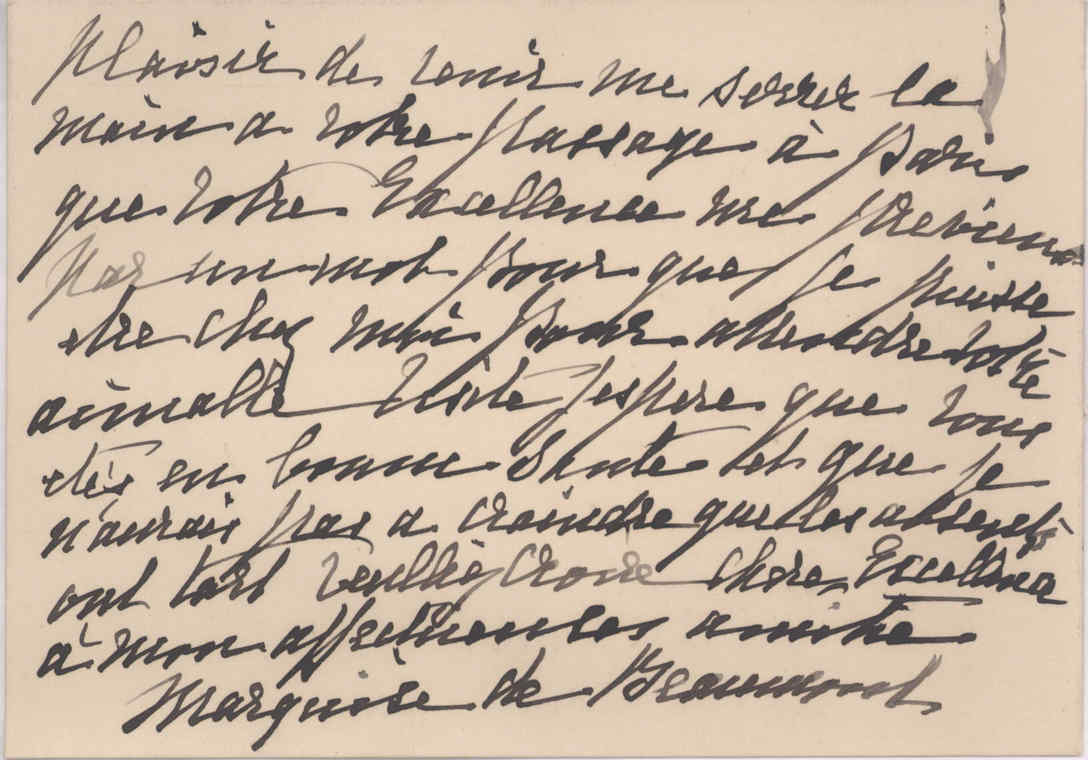 plaisir de venir me serrer la
main a votre passage à Paris
que votre Excellence me previenne
par un mot pour que je puisse
etre chez moi pour attendre votre
aimable visite j'espere que vous
etes en bonne santé et que je
n'aurais pas a craindre que les absents
ont tort veuillez croire chere Excellence
à mon affectueuse amitie
Marquise de Beaumont